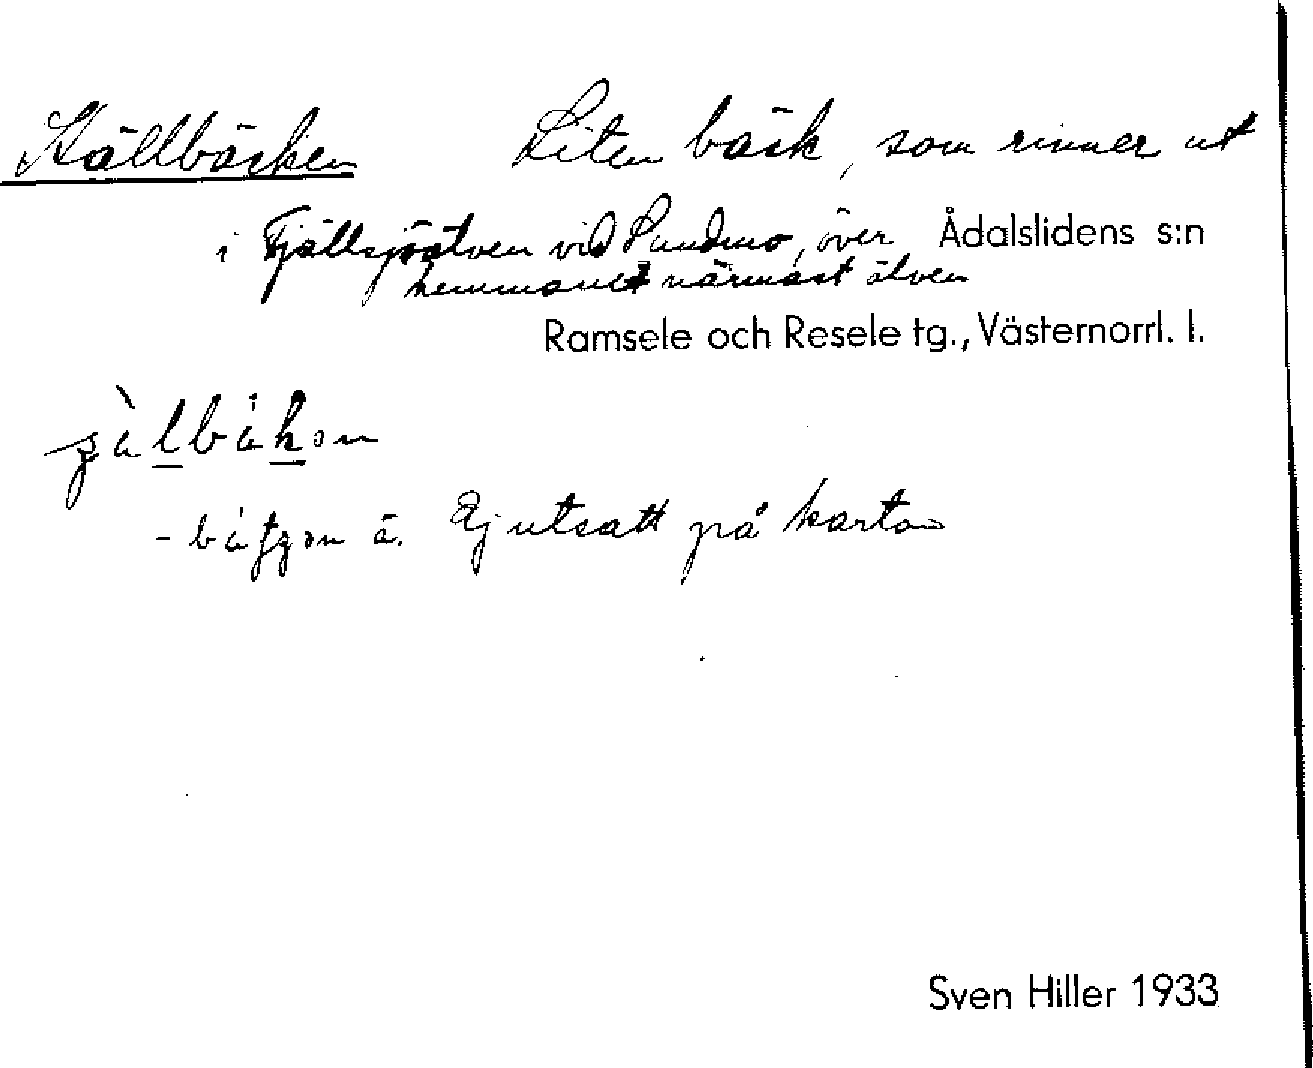 Källbäcken Liten bäck, som rinner ut
i Fjällsjöälven vid Sundmo, över Ådalslidens s:n
hemmanet närmast älven
Ramsele och Resele tg., Västernorrl. l.
Ej utsatt på kartan
Sven Hiller 1933